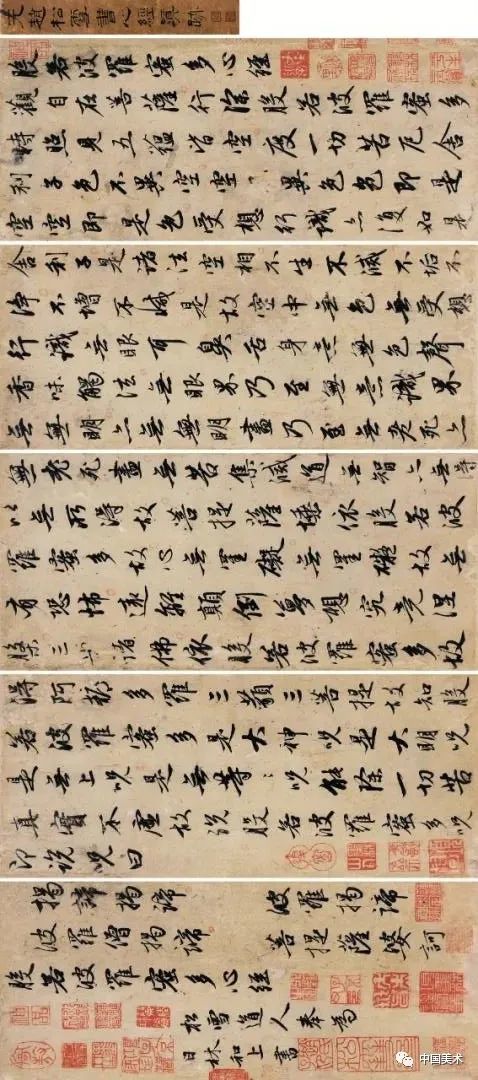 元趙松雪書心經真蹟
般若波羅蜜多心經
觀自在菩薩行深般若波羅蜜多
時照見五蘊皆空度一切苦厄舍
利子色不異空空不異色色即是
空空即是色受想行識亦復如是
舍利子是諸法空相不生不滅不垢不
淨不增不減是故空中無色無受想
行識無眼耳鼻舌身意無色聲
香味觸法無眼界乃至無意識界
無無明亦無無明盡乃至無老死亦
無老死盡無苦集滅道無智亦無得
以無所得故菩提薩埵依般若波
羅蜜多故心無罣礙無罣礙故無
有恐怖遠離顛倒夢想究竟涅
槃三世諸佛依般若波羅蜜多故
得阿耨多羅三藐三菩提故知般
若波羅蜜多是大神咒是大明咒
是無上咒是無等:咒能除一切苦
真實不虛故說般若波羅蜜多咒
即說咒曰
揭諦揭諦 波羅揭諦
波羅僧揭諦 菩提薩婆訶
般若波羅蜜多心經
松雪道人奉為
日林和上書
中国美术